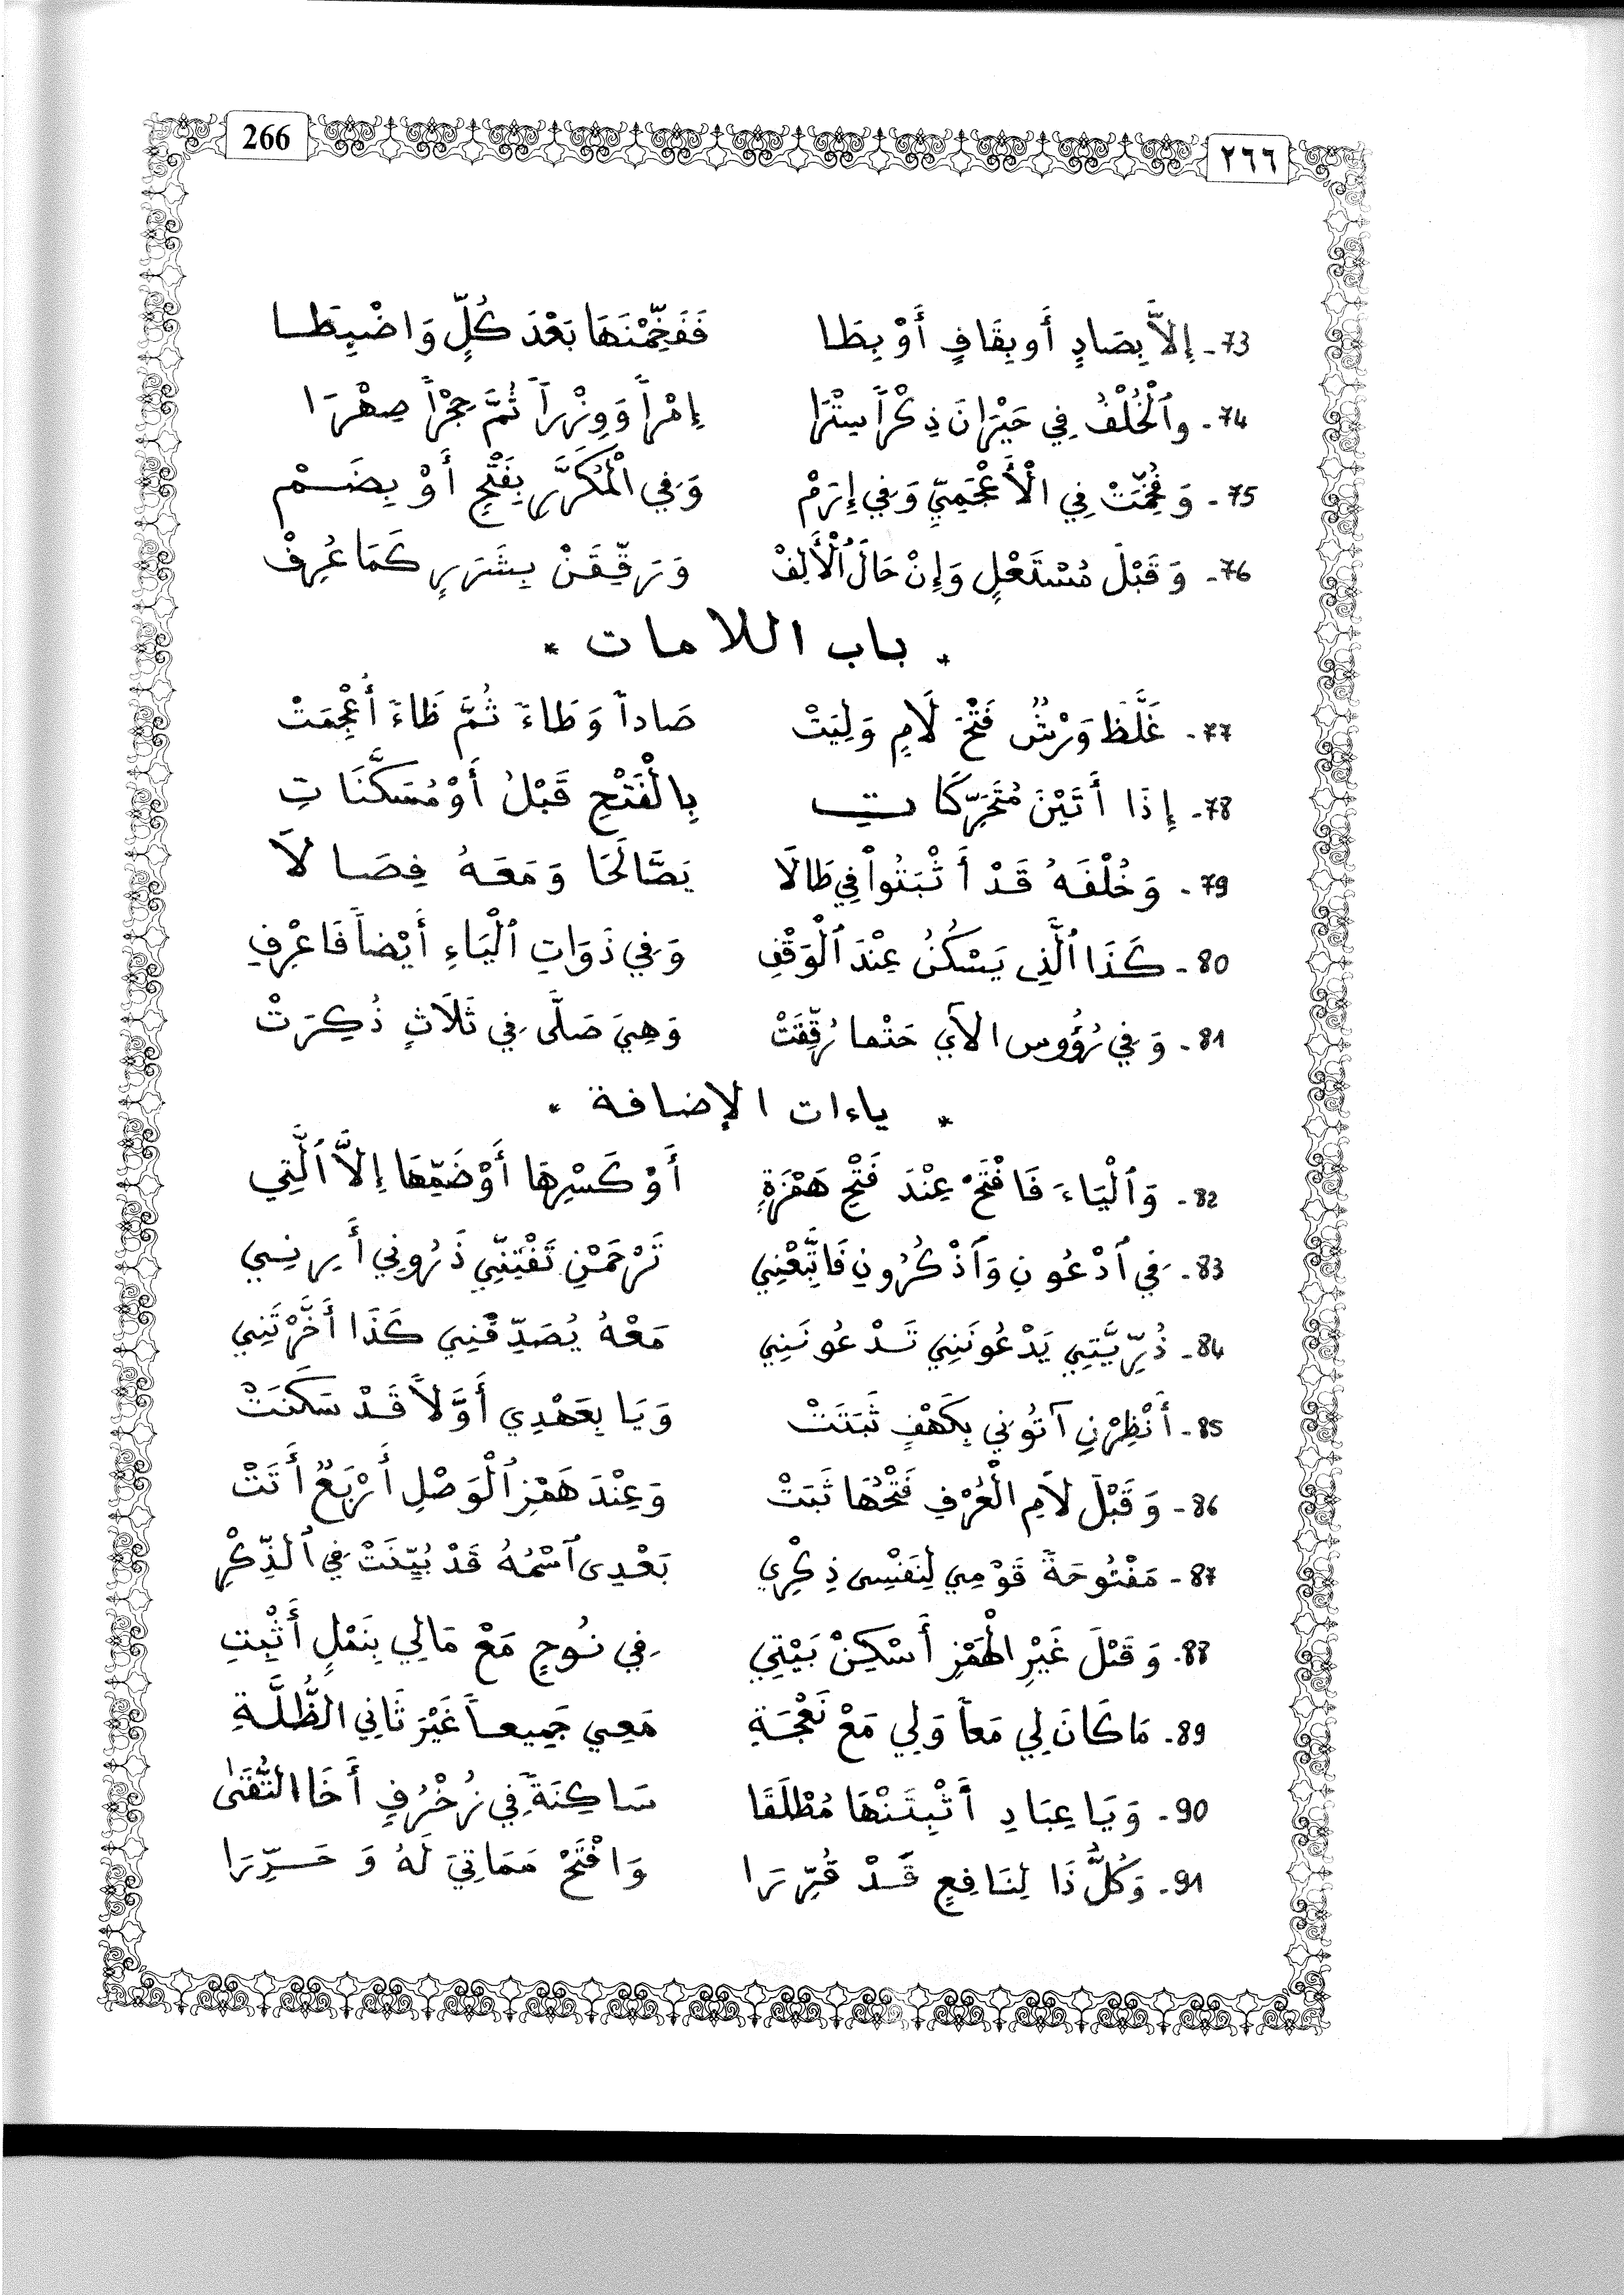 266
٢٦٦
73- إِلاَّ بِصَادٍ أَو بِقَافٍ أَوْ بِطَا فَفَخِّمْنَهَا بَعْدَ كُلٍّ وَاضْبِطَا
74- وٱلْخُلْفُ فِي حَيْرَانَ ذِكْراً سِتْرَا إِمْراً وَوِزْراً ثُمَّ حِجْراً صِهْرَا
75- وَفُخِّمَتْ فِي الْأَعْجَمِيِّ وَفِي إِرَمْ وَفِي الْمُكَرَّرِ بِفَتْحٍ أَوْ بِضَمْ
76- وَقَبْلَ مُسْتَعْلٍ وَإِنْ حَالَ ٱلْأَلِفْ وَرَقِّقَنْ بِشَرَرٍ كَمَا عُرِفْ
* باب اللامات *
77- غَلَّظَ وَرْشٌ فَتْحَ لَامٍ وَلِيَتْ صَاداً وَطَاءً ثُمَّ ظَاءً أُعْجِمَتْ
78- إِذَا أَتَيْنَ مُتَحَرِّكَاتِ بِالْفَتْحِ قَبْلُ أَوْ مُسَكَّنَاتِ
79- وَخُلْفَهُ قَدْ أَثْبَتُواْ فِي طَالَا يَصَّالَحَا وَمَعَهُ فِصَالاَ
80- كَذَا ٱلَّذِي يَسْكُنُ عِنْدَ ٱلْوَقْفِ وَفِي ذَوَاتِ ٱلْيَاءِ أَيْضاً فَاعْرِفِ
81- وَفِي رُؤُوسِ الآيِ حَتْما رُقِّقَتْ وَهِيَ صَلَّى فِي ثَلَاثٍ ذُكِرَتْ
* ياءات الإضافة *
82- وَٱلْيَاءَ فَافْتَحْ عِنْدَ فَتْحِ هَمْزَةِ أَوْ كَسْرِهَا أَوْ ضَمِّهَا إِلاَّ ٱلَّتِي
83- فِي ٱدْعُونِ وَٱذْكُرُونِ فَاتَّبِعْنِي تَرْحَمْنِ تَفْتِنِّي ذَرُونِي أَرِنِي
84- ذُرِّيَّتِي يَدْعُونَنِي تَدْعُونَنِي مَعْهُ يُصَدِّقْنِي كَذَا أَخَّرْتَنِي
85- أَنْظِرْنِ آتُونِي بِكَهْفٍ ثَبَتَتْ وَيَا بِعَهْدِي أَوَّلاً قَدْ سَكَنَتْ
86- وَقَبْلَ لاَمِ الْعُرْفِ فَتْحُهَا ثَبَتْ وَعِنْدَ هَمْزِ ٱلْوَصْلِ أَرْبَعٌ أَتَتْ
87- مَفْتُوحَةً قَوْمِي لِنَفْسِى ذِكْرِي بَعْدِى ٱسْمُهُ قَدْ بُيِّنَتْ فِي ٱلذِّكْرِ
88- وَقَبْلَ غَيْرِ الْهَمْزِ أَسْكِنْ بَيْتِي فِي نُوحٍ مَعْ مَالِي بِنَمْلٍ أَثْبِتِ
89- مَا كَانَ لِي مَعاً وَلِي مَعْ نَعْجَةِ مَعِي جَمِيعاً غَيْرَ ثَانِي الظُّلَّةِ
90- وَيَا عِبَادِ أَثْبِتَنْهَا مُطْلَقَا سَاكِنَةً فِي زُخْرُفٍ أَخَا التُّقَىٰ
91- وَكُلُّ ذَا لِنَافِعٍ قَدْ قُرِّرَا وَافْتَحْ مَمَاتِيَ لَهُ وَحَرِّرَا